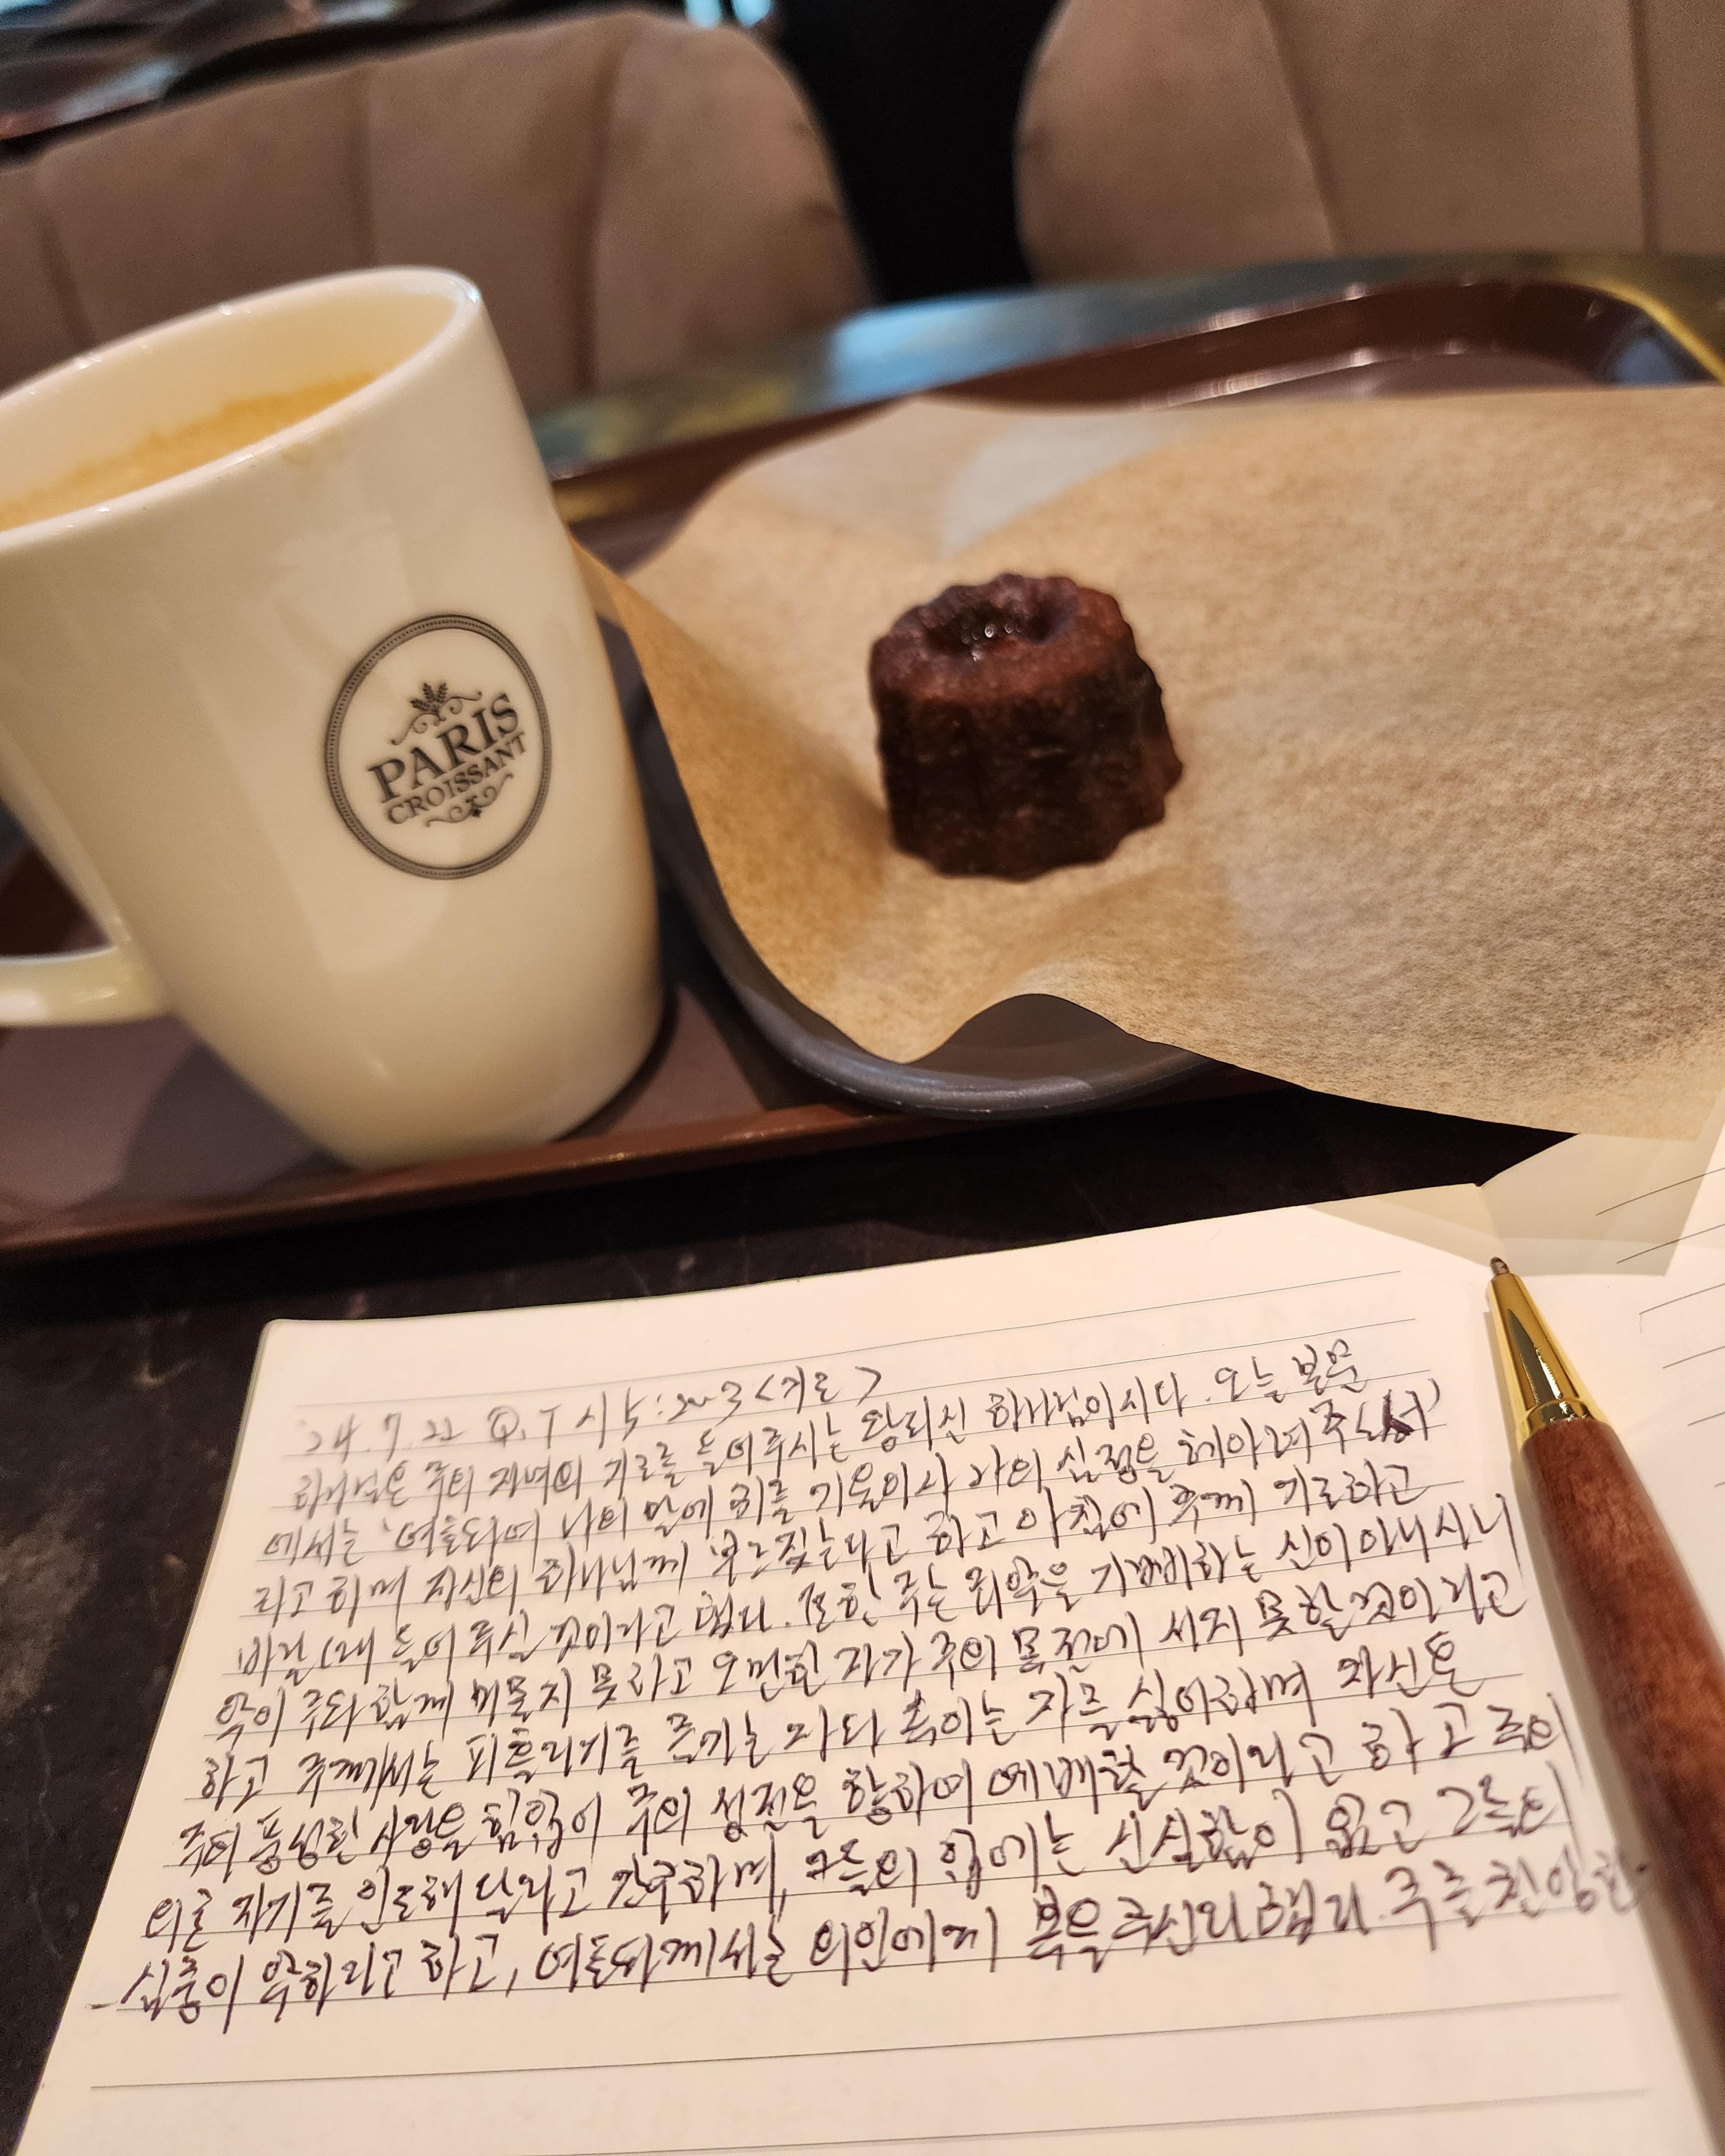 PARIS
CROISSANT
'24. 7. 22 Q.T 시 5: <기도>
하나님은 주의 자녀의 기도를 들어주시는 왕되신 하나님이시다. 오늘 본문
에서는 '여호와여 나의 말에 귀를 기울이사 나의 심정을 헤아려주소서'
라고 하며 자신의 하나님께 부르짖는다고 하고 아침에 주께 기도하고
바랄 때 들어주실 것이라고 했다. 또한 주는 죄악을 기뻐하는 신이 아니시니
악이 주와 함께 머물지 못하고 오만한 자가 주의 목전에 서지 못할 것이라고
하고 주께서는 피흘리기를 즐기는 자와 속이는 자를 싫어하며 자신은
주의 풍성한 사랑을 힘입어 주의 성전을 향하여 예배할 것이라고 하고 주의
의로 자기를 인도해 달라고 간구하며, 그들의 입에는 신실함이 없고 그들의
심중이 악하라고 하고, 여호와께서는 의인에게 복을 주신다 했다. 주를 찬양한